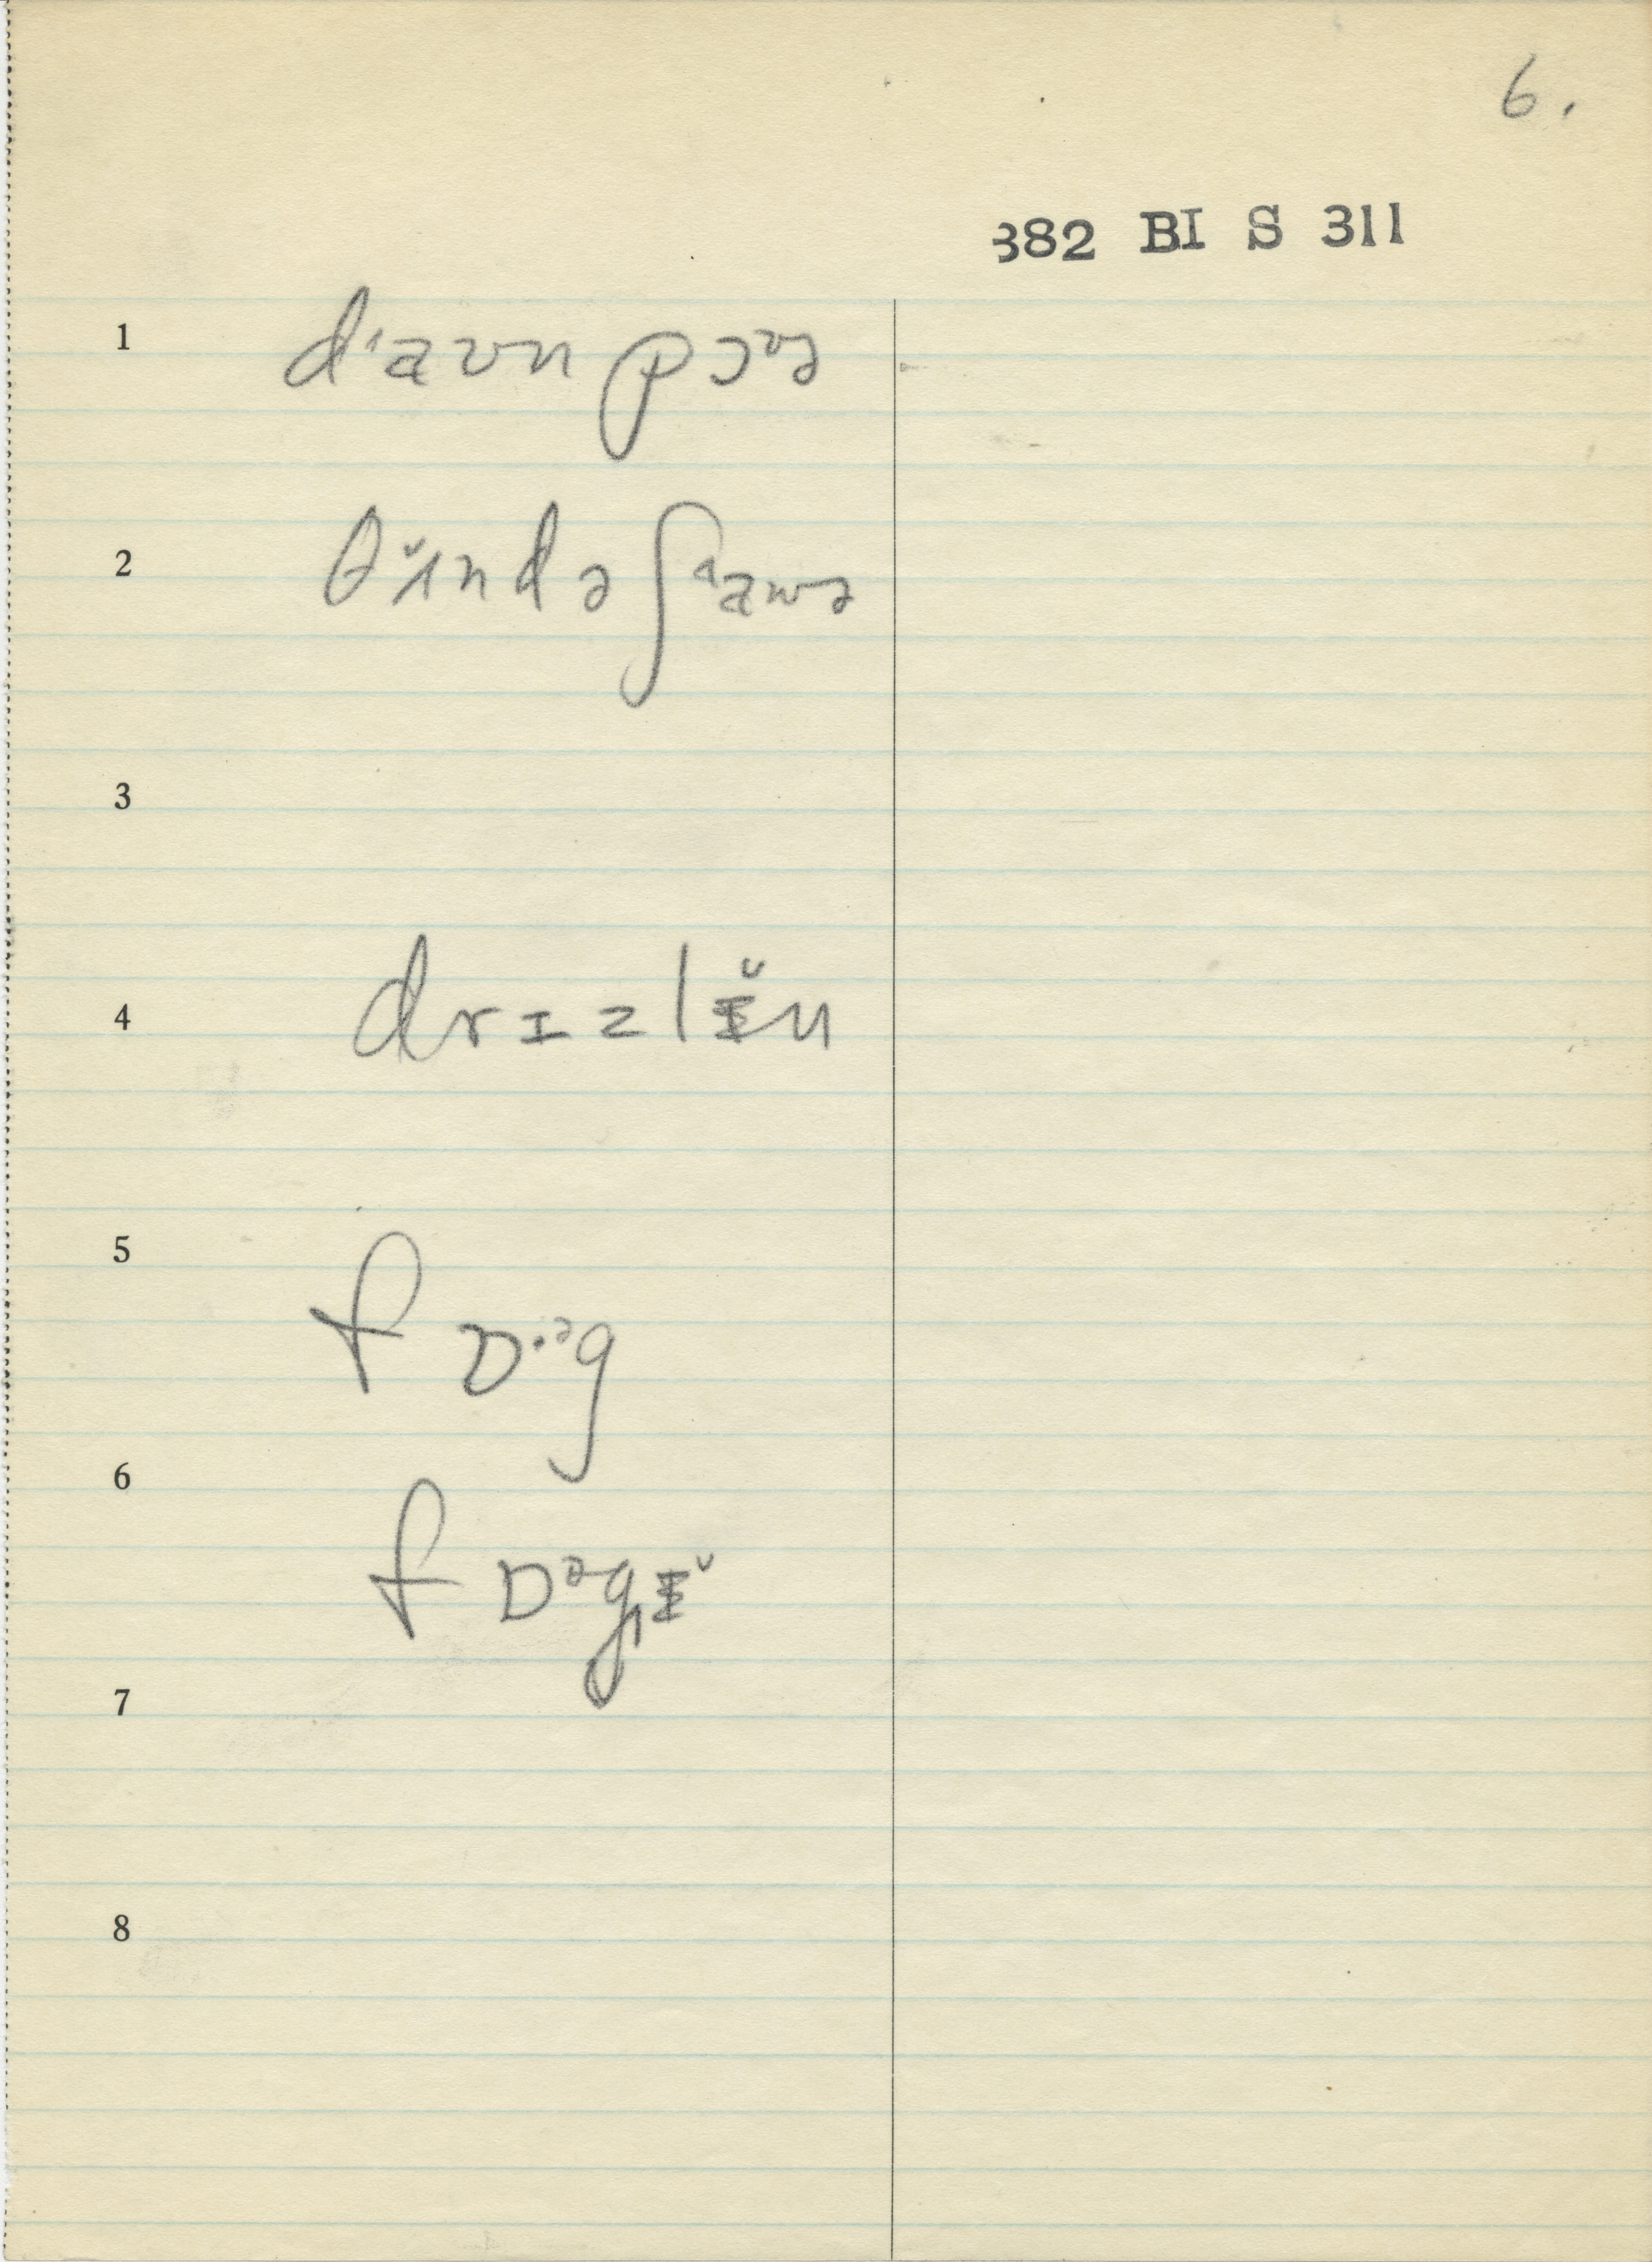 6.
382 BI S 311
1 d'aʊn pɔᶷə
2 θɪ̆ndə ʃᵃaʊə
3
4 drɪzlɪ̆n
5 fɒ·ᵊg
6 fɒᵊgɪ̆
7
8